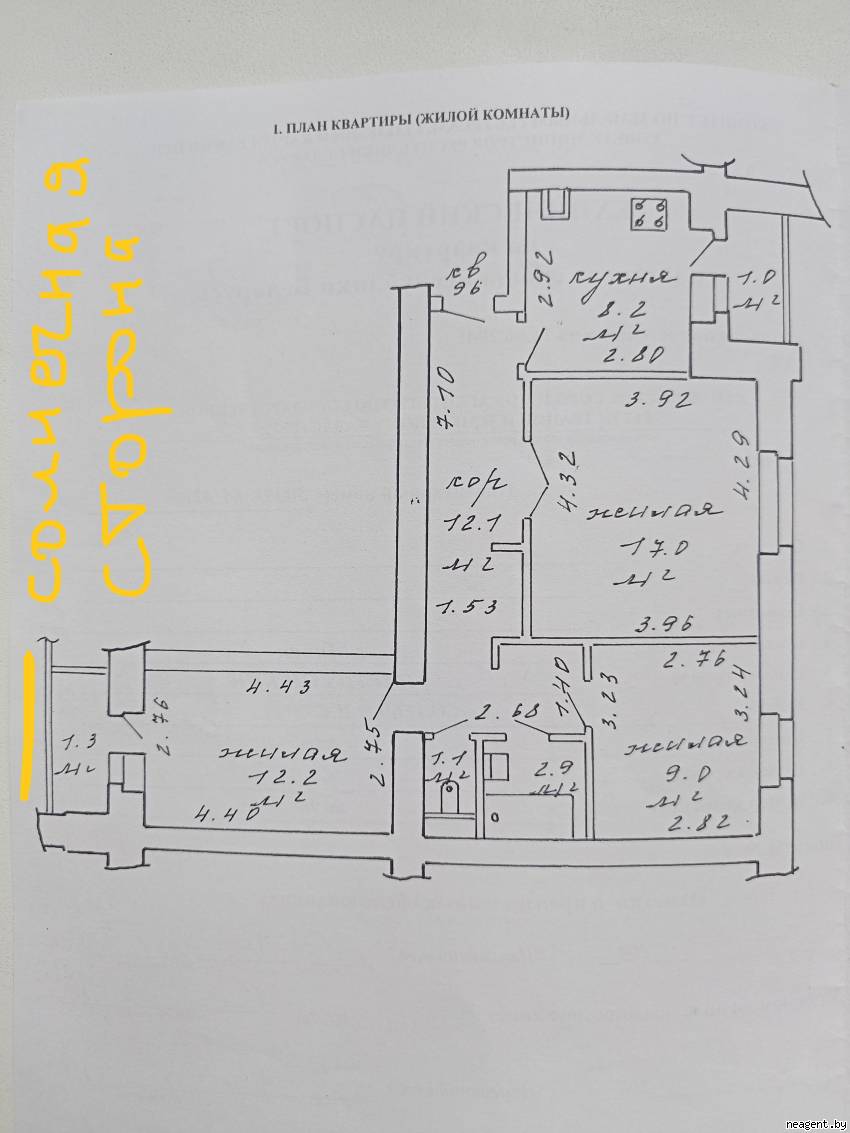 1. ПЛАН КВАРТИРЫ (ЖИЛОЙ КОМНАТЫ)
солнечная
сторона
кв
96
2.92
кухня
8.2
м²
2.80
1.0
м²
7.10
3.92
4.29
4.32
кор
12.1
м²
1.53
жилая
17.0
м²
3.96
2.76
4.43
2.76
1.3
м²
жилая
12.2
м²
4.40
2.75
2.68
1.40
3.23
3.24
1.1
м²
2.9
м²
жилая
9.0
м²
2.82
neagent.by